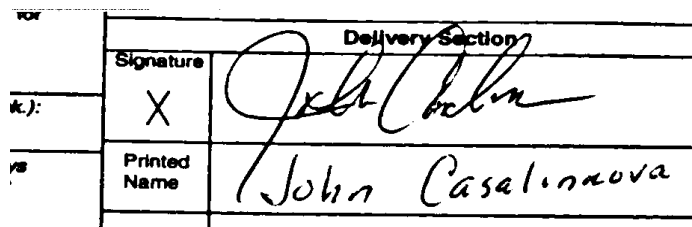 for
Delivery Section
Signature
k.):
X
ys
Printed
Name
John Casalinnova